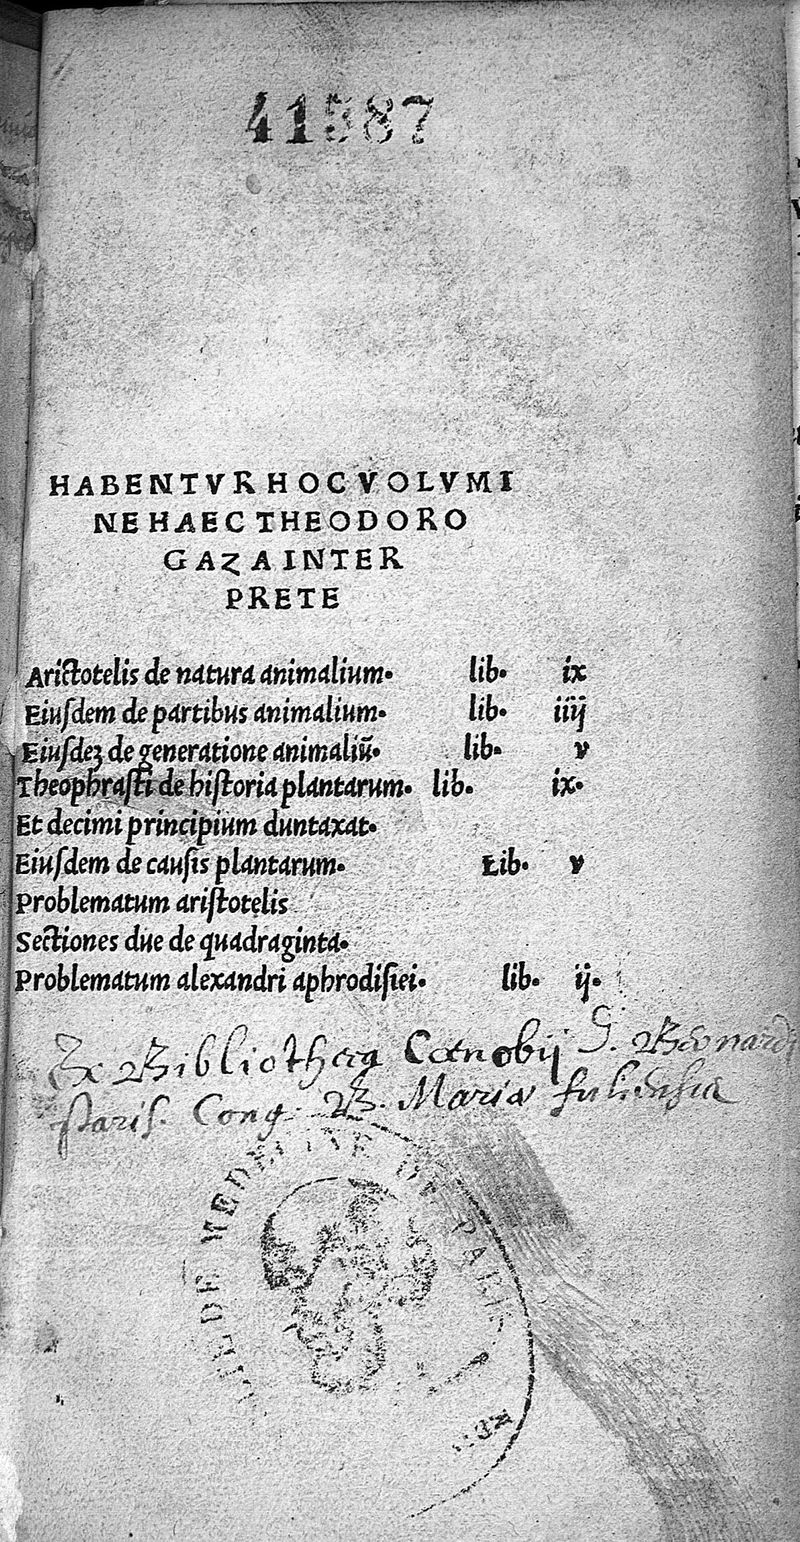 41587
HABENTVR HOC VOLVMI
NE HAEC THEODORO
GAZA INTER
PRETE
Ariſtotelis de natura animalium. lib. ix
Eiuſdem de partibus animalium. lib. iiij
Eiuſdeʒ de generatione animaliū. lib. v
Theophraſti de hiſtoria plantarum. lib. ix.
Et decimi principium duntaxat.
Eiuſdem de cauſis plantarum. Lib. v
Problematum ariſtotelis
Sectiones due de quadraginta.
Problematum alexandri aphrodiſiei. lib. ij.
Ex Bibliotheca Cœnobij S. Bernardi
Cong. B. Mariæ fulienſis
DE MEDECINE DE PARIS